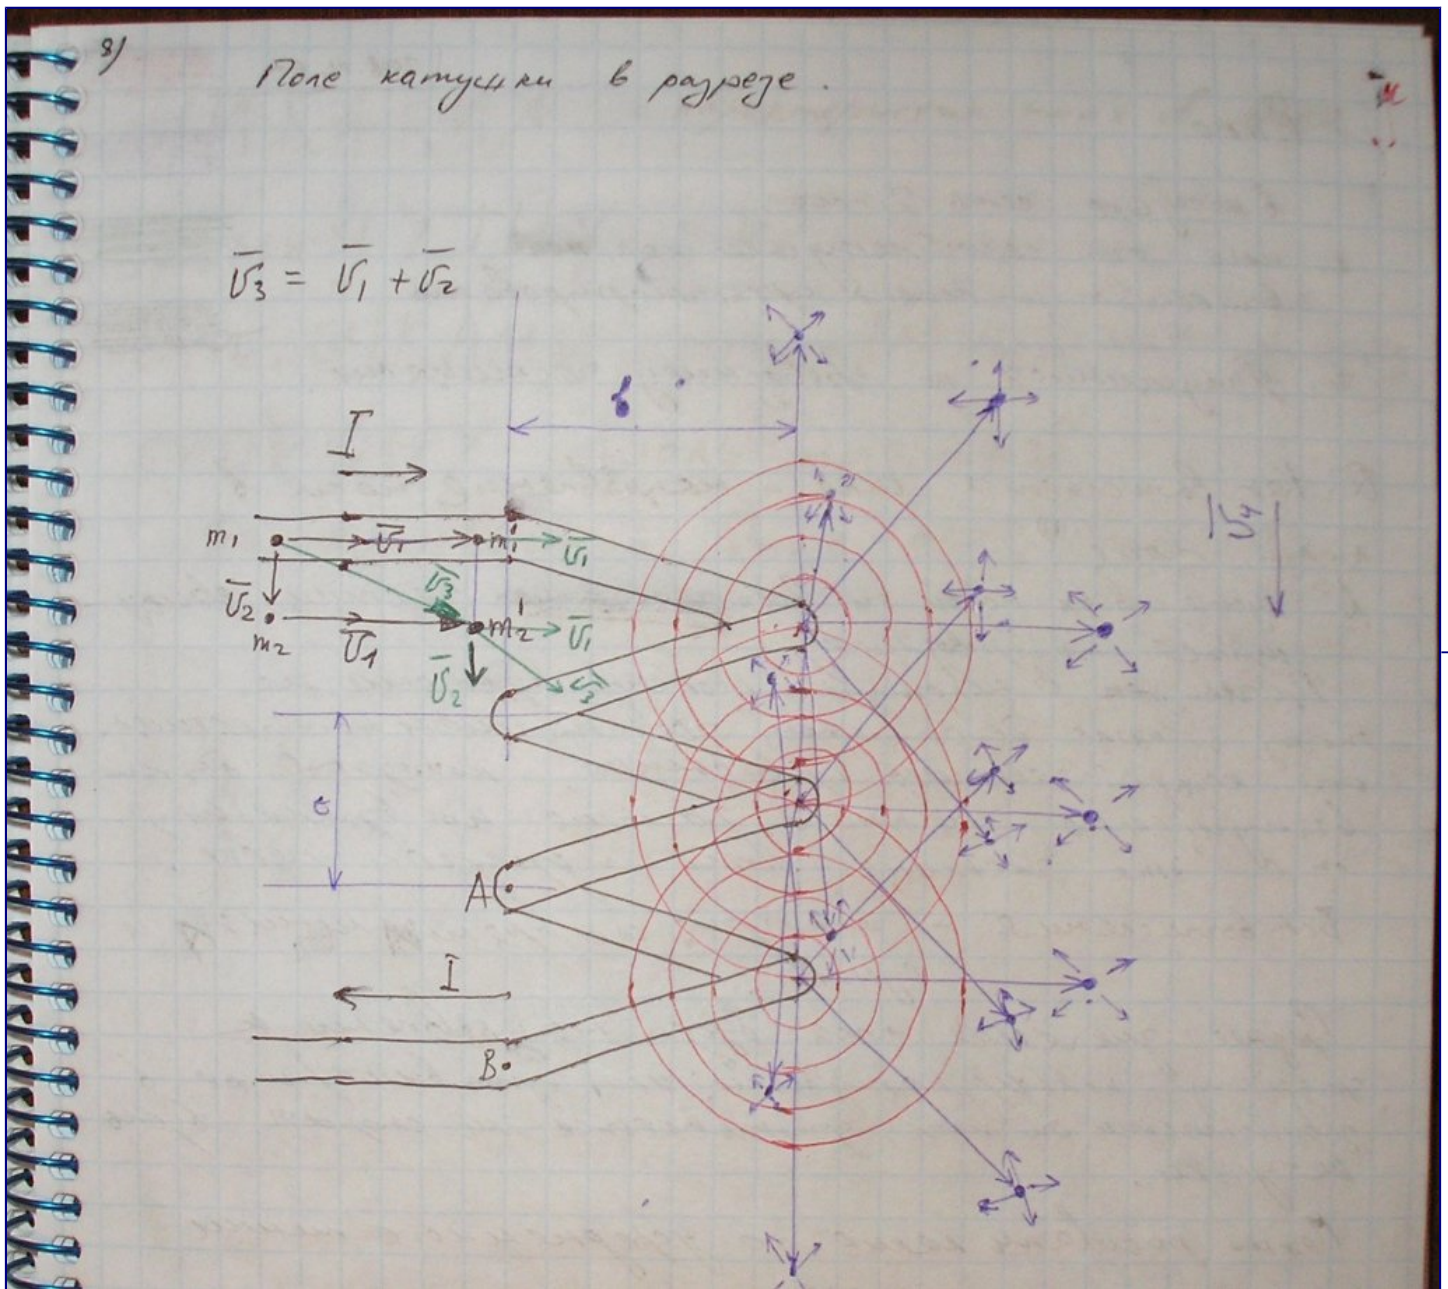 8)
Поле катушки в разрезе.
v̄3 = v̄1 + v̄2
в
I
m1 v̄1 m1' v̄1
v̄4
v̄3
v̄2 m2' v̄1
m2 v̄1
v̄2 v̄3
A
I
B